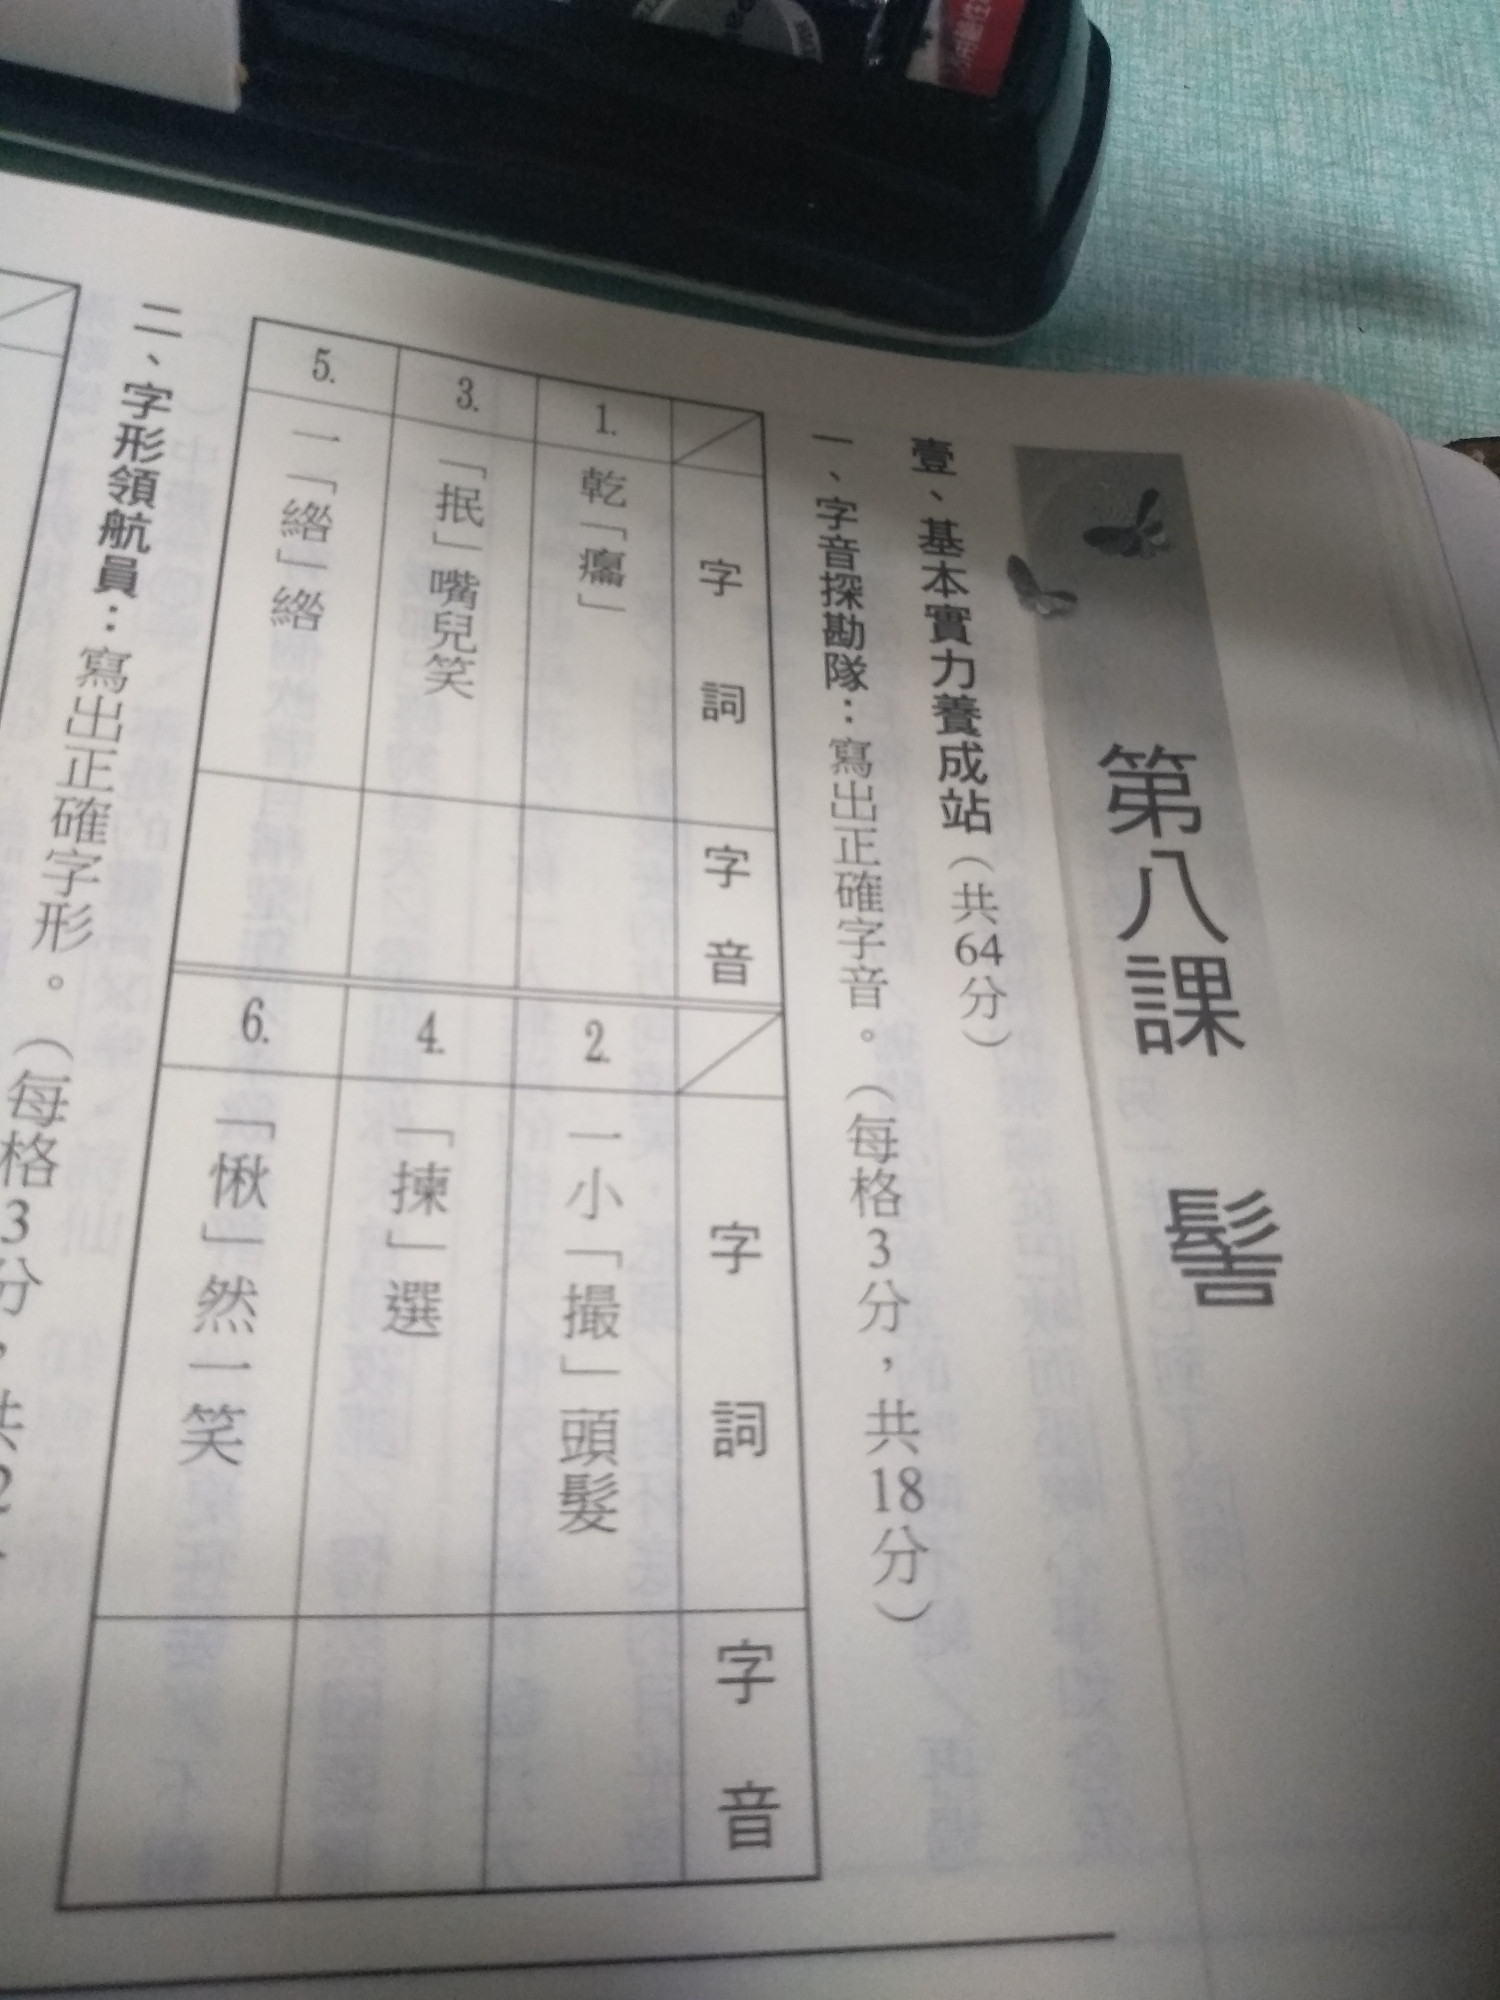 第八課 髻
壹、基本實力養成站（共64分）
一、字音探勘隊：寫出正確字音。（每格3分，共18分）
字詞 字音 字詞 字音
1. 乾「癟」 2. 一小「撮」頭髮
3. 「抿」嘴兒笑 4. 「揀」選
5. 一「綹」綹 6. 「愀」然一笑
二、字形領航員：寫出正確字形。（每格3分，共2